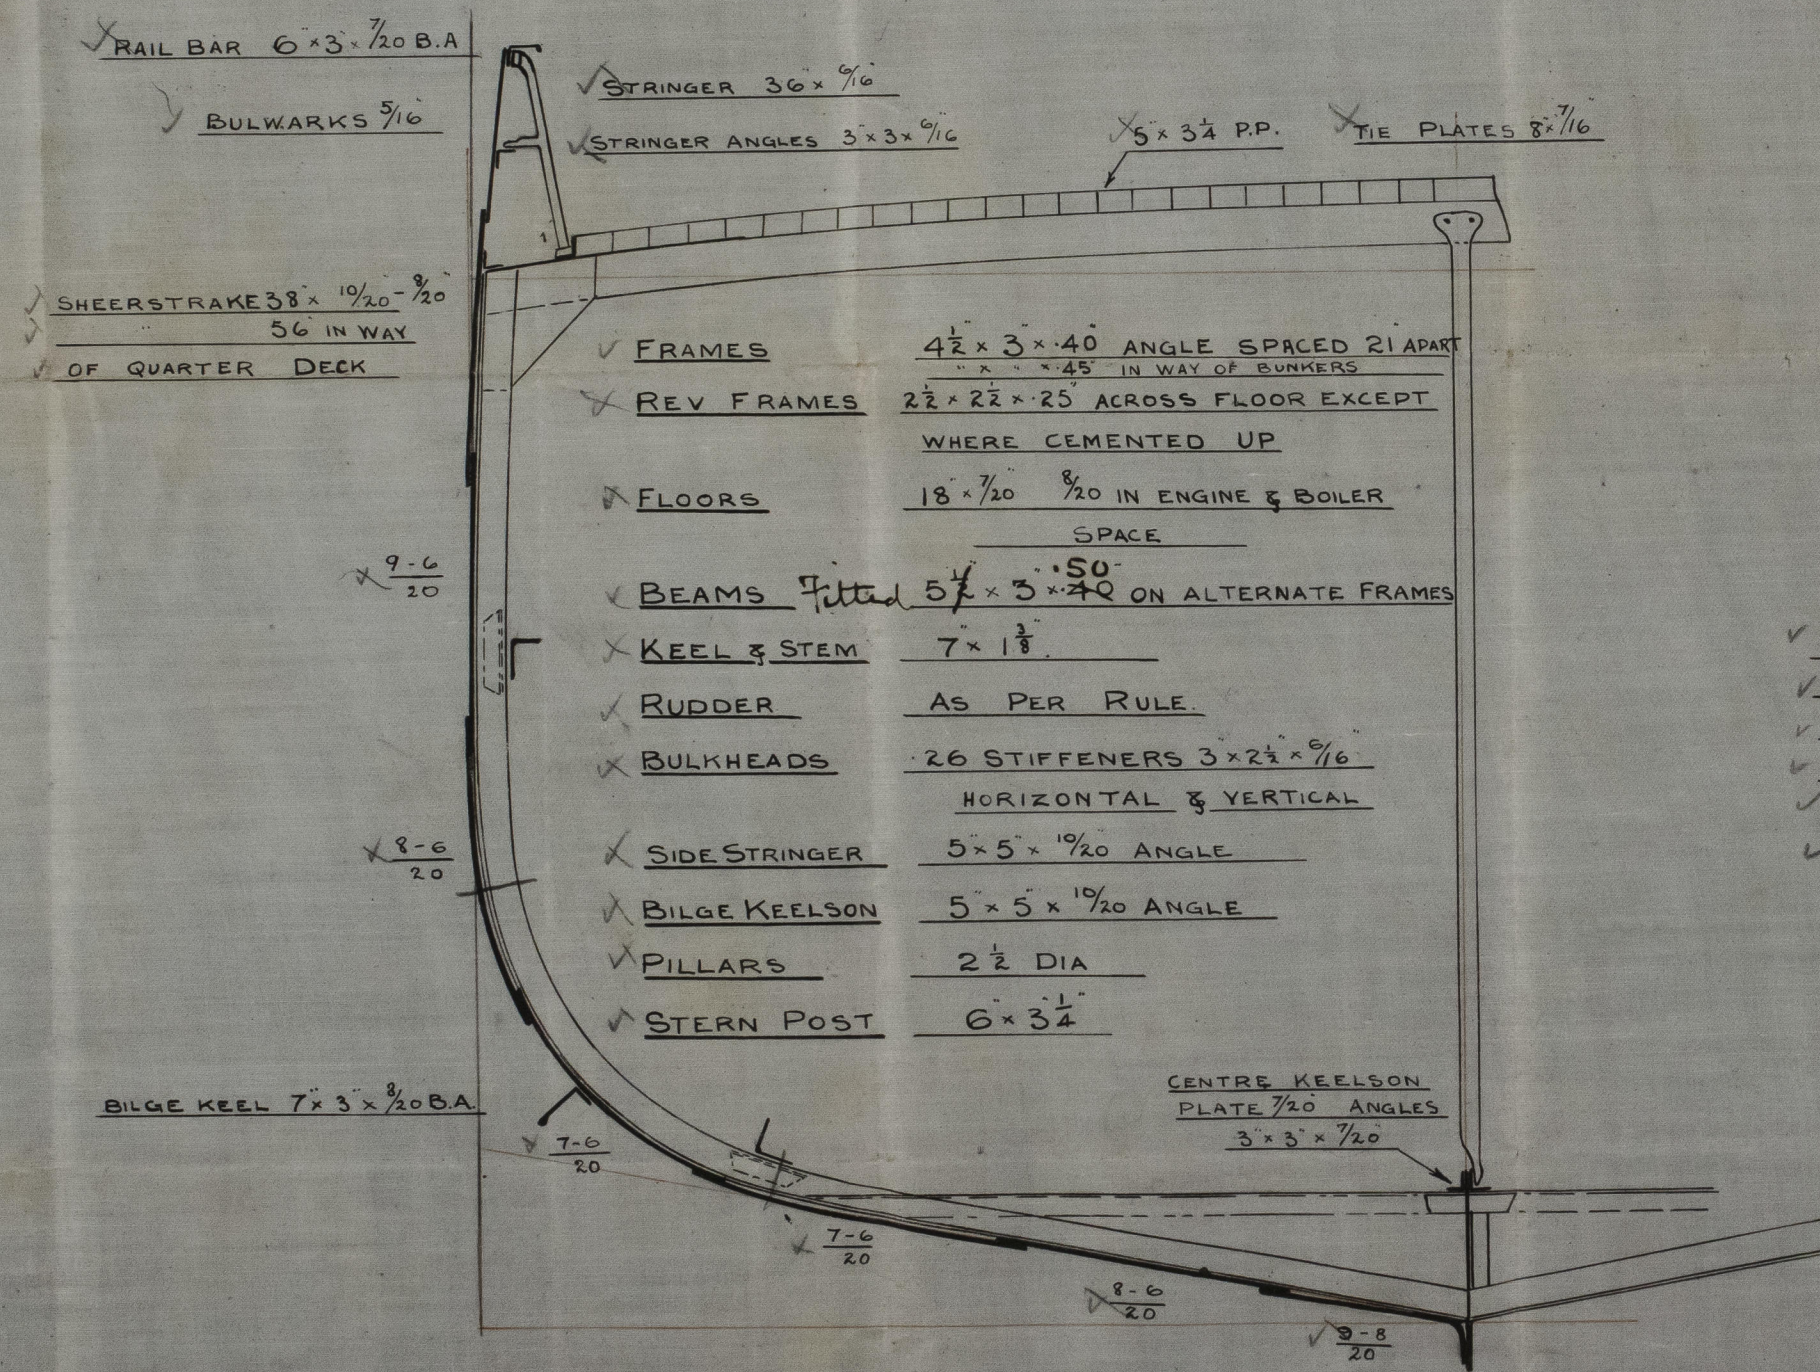 RAIL BAR 6" × 3" × 7/20" B.A
BULWARKS 5/16"
STRINGER 36" × 6/16"
STRINGER ANGLES 3" × 3 × 6/16"
5" × 3 1/4 P.P.
TIE PLATES 8" × 7/16"
SHEERSTRAKE 38" × 10/20 - 8/20"
" 56" IN WAY
OF QUARTER DECK
FRAMES 4 1/2" × 3" × ·40" ANGLE SPACED 21" APART
" × " × ·45" IN WAY OF BUNKERS
REV FRAMES 2 1/2" × 2 1/2" × ·25" ACROSS FLOOR EXCEPT
WHERE CEMENTED UP
FLOORS 18" × 7/20" 8/20" IN ENGINE & BOILER
SPACE
·50
BEAMS Fitted 5 1/2 × 3" × ·40 ON ALTERNATE FRAMES
KEEL & STEM 7" × 1 3/8"
RUDDER AS PER RULE.
BULKHEADS ·26 STIFFENERS 3" × 2 1/2" × 6/16"
HORIZONTAL & VERTICAL
SIDE STRINGER 5" × 5" × 10/20" ANGLE
BILGE KEELSON 5" × 5" × 10/20" ANGLE
PILLARS 2 1/2" DIA
STERN POST 6" × 3 1/4"
9-6
20
8-6
20
BILGE KEEL 7" × 3" × 8/20 B.A.
7-6
20
7-6
20
8-6
20
9-8
20
CENTRE KEELSON
PLATE 7/20" ANGLES
3" × 3" × 7/20"